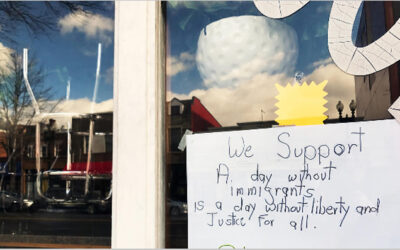 We Support
A day without
immigrants
is a day without liberty and
Justice for all.